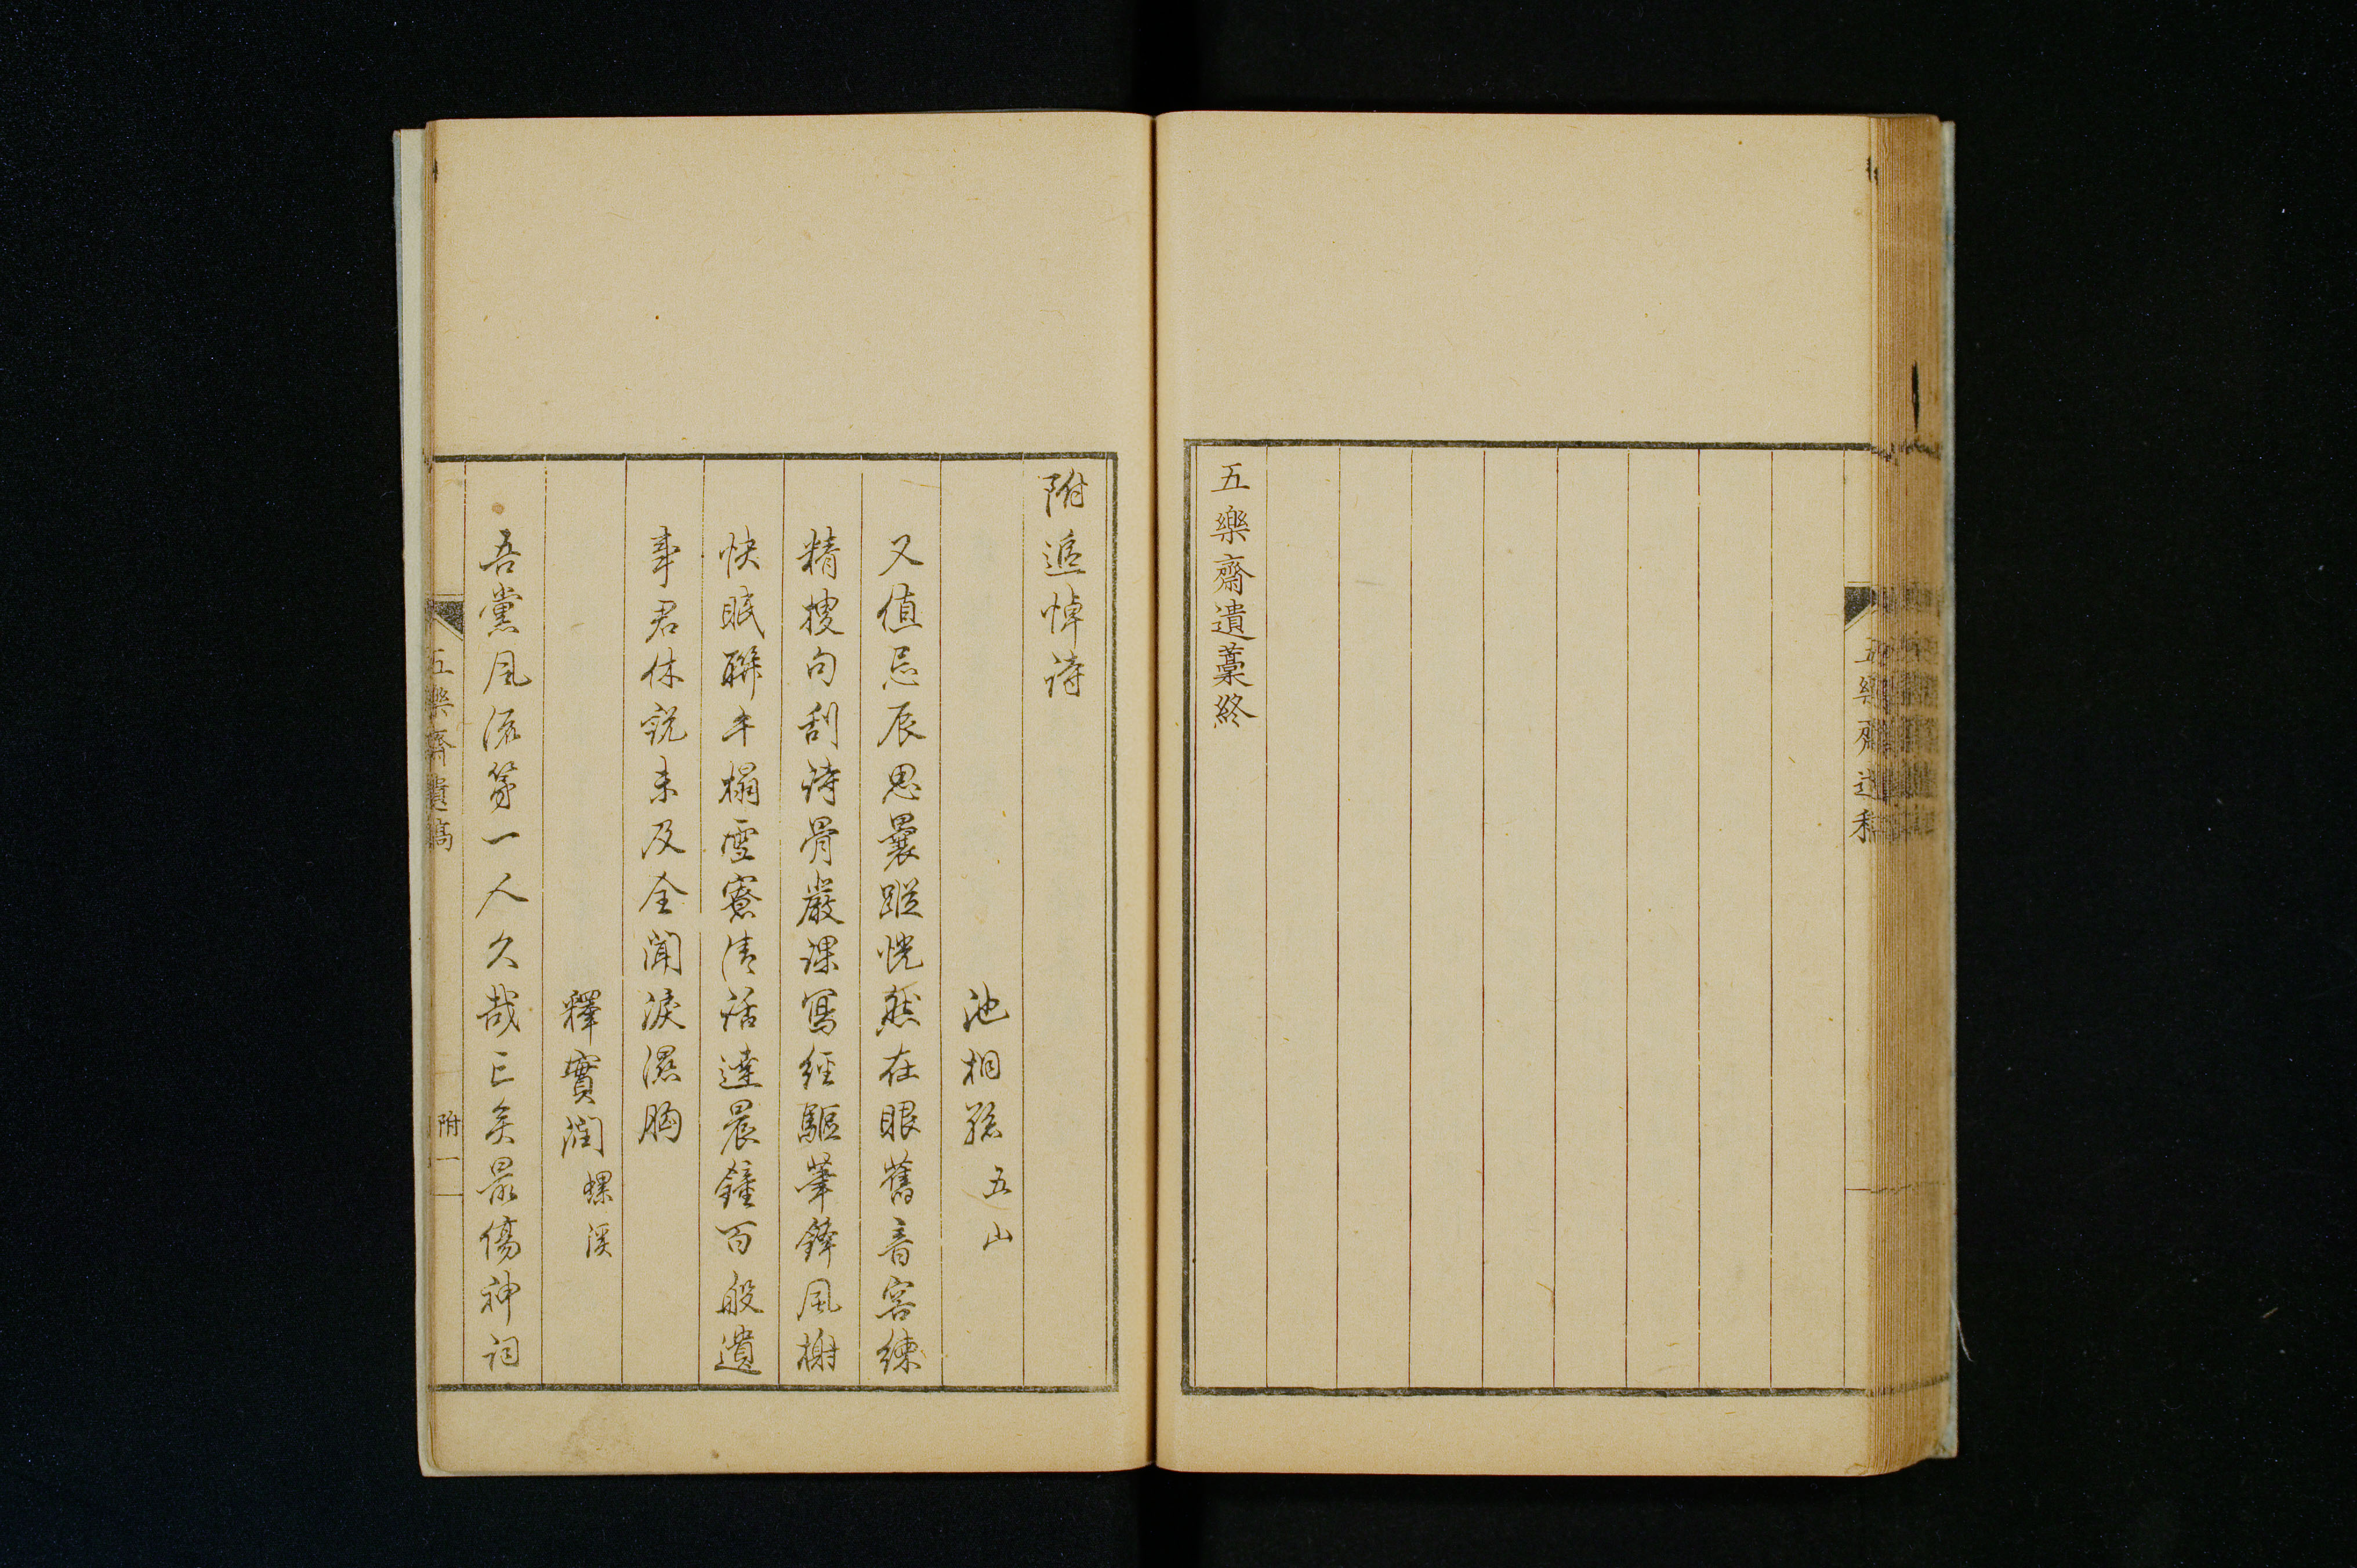 五樂齋遺稿
五樂齋遺藁終
附追悼詩
池桐孫五山
又值忌辰思曩蹤恍然在眼舊音容練
精搜句刮詩骨嚴課寫經驅筆鋒風榭
快眠聯半榻雪寮清話達晨鐘百般遺
事君休説未及全聞淚濕胸
釋實潤螺溪
吾黨風流第一人久哉已矣最傷神詞
五樂齋遺稿 附一